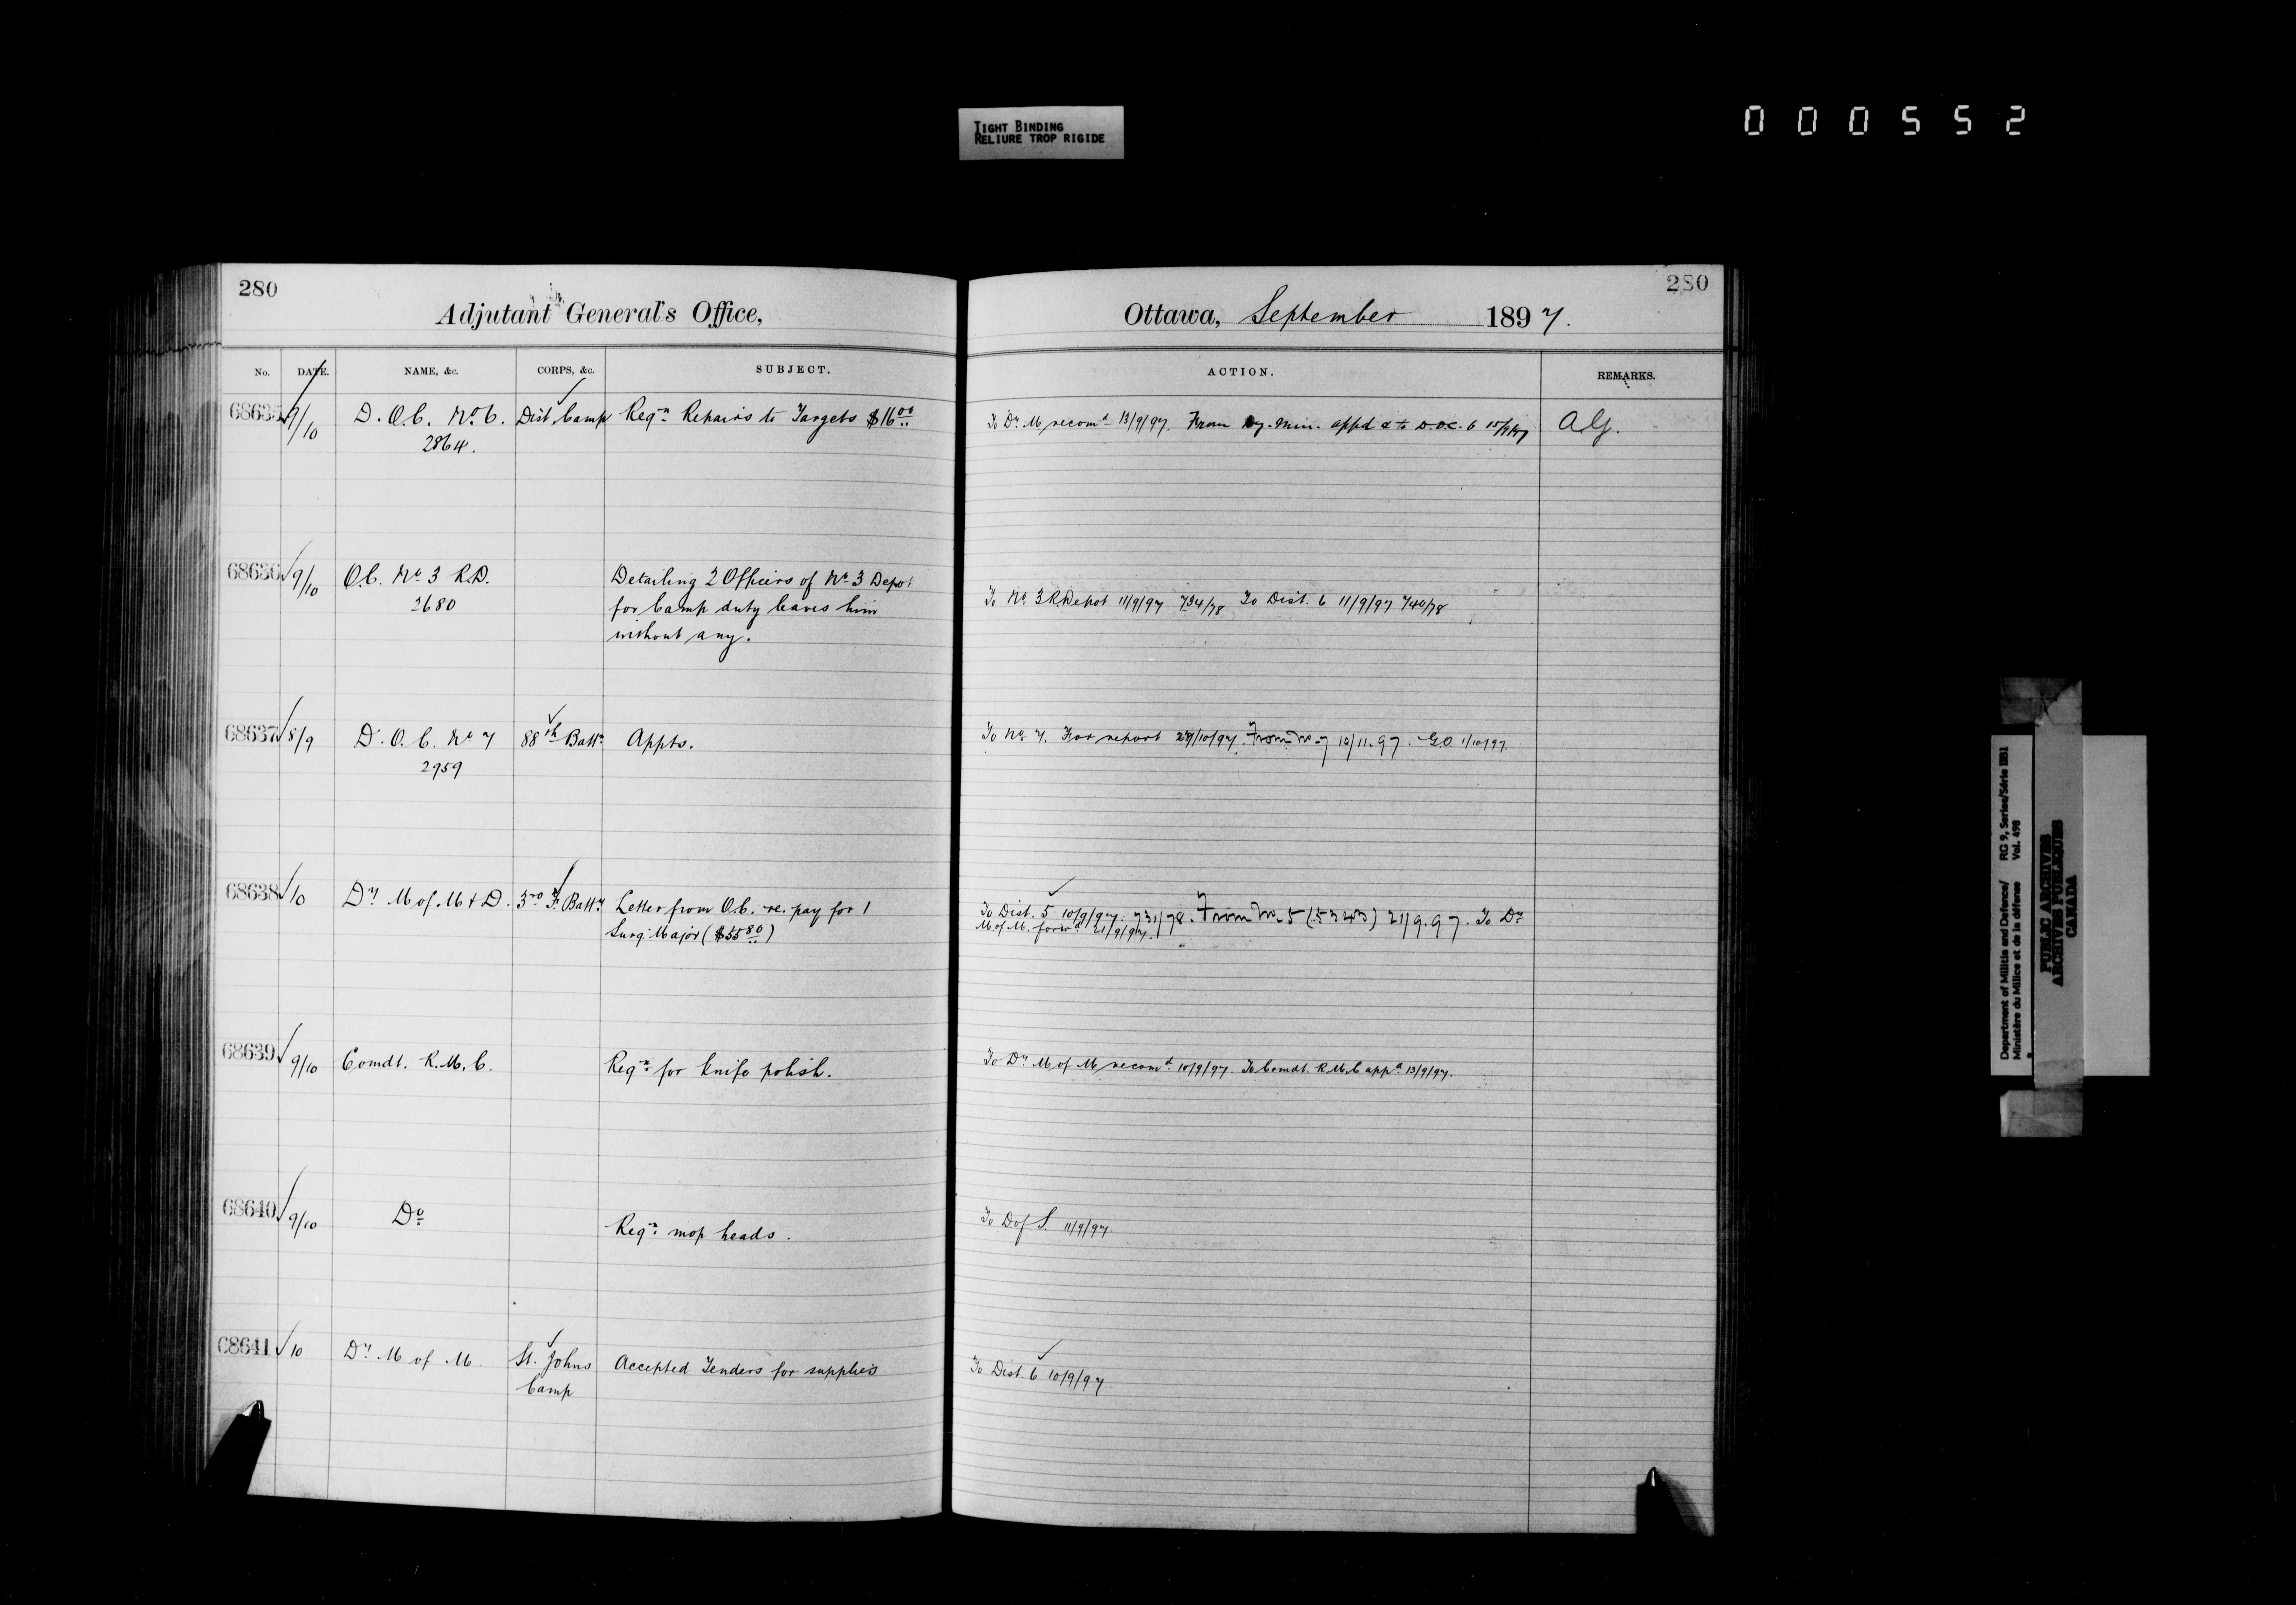 TIGHT BINDING
RELIURE TROP RIGIDE
000552
280
Adjutant General's Office,
Ottawa, September 1897.
280
No. DATE. NAME, &c. CORPS, &c. SUBJECT. ACTION. REMARKS.
68635 9/10 D.O.C. No. 6. Dist Camp Reqn. Repairs to Targets $16.00 To Dy. M recomd 13/9/97. From Dy. Min. appd & to D.O.C. 6 AG.
2864.
68636 9/10 O.C. No 3 R.D. Detailing 2 Officers of No 3 Depot
2680 for Camp duty leaves him To No. 3 R. Depot 11/9/97 734/78 To Dist. 6 11/9/97 740/78
without any.
68637 8/9 D.O.C. No 7 88th Battn. Appts. To No. 7. For report 10/97. From No 7 10/11.97. GO 1/10/97.
2959
68638 10 Dy. M of M & D. 3rd F. Batty Letter from O.C. re. pay for 1 To Dist. 5 10/9/97. 731/78. From No. 5 (5343) 21/9.97. To Dy.
Surg: Major ($55.80) M of M. forwd. 21/9/97.
68639 9/10 Comdt. R.M.C. Reqn. for knife polish. To Dy. M of M recomd 10/9/97. To Comdt. R.M.C appd 13/9/97.
68640 9/10 Do Reqn. mop heads. To D of S. 11/9/97.
68641 10 Dy. M of M St. Johns Accepted Tenders for supplies To Dist. 6 10/9/97
Camp
Department of Militia and Defence/ RG 9, Series/Série IIB1
Ministère du Milice et de la défense Vol. 498
PUBLIC ARCHIVES
ARCHIVES PUBLIQUES
CANADA